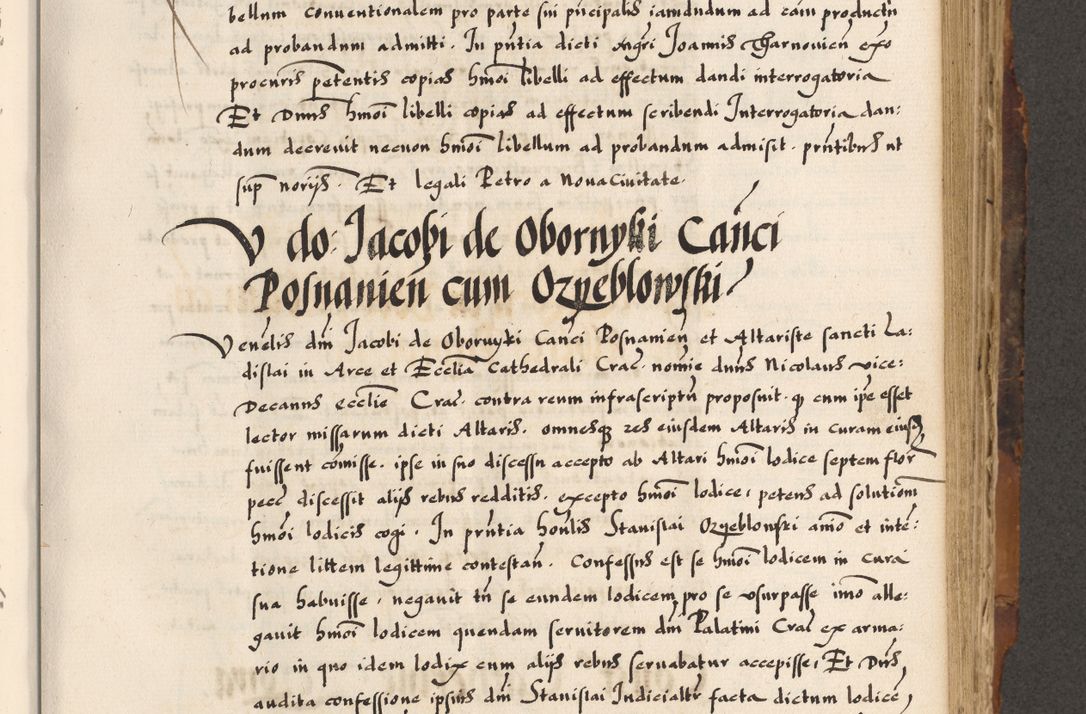 bellum conventionalem pro parte sui prīcipalis iamdudum ad cām productū
ad probandum admitti. In pn̄tia dicti mgri Joannis Tharnovień ex͞o
procuris petentis copias hmōi libelli ad effectum dandi interrogatoria
Et Dnus hmōi libelli copias ad effectum scribendi Interrogatoria dan:
dum decrevit necnon hmōi libellum ad probandum admisit. prn̄tibus ut
sup̄ norijs. Et legali Petro a Nova Civitate.
V do: Jacobi de Obornyki Can̄ci
Posnanień cum Ozyeblowski
Venēlis dn̄i Jacobi de Obornyki Can̄ci Posnanień et Altariste sancti La:
dislai in Arce et Ecclīa Cathedrali Crac̄. nomīe dnūs Nicolaus vice:
Decanus ecclīe Crac̄. contra reum infrascriptū proposuit. q̄ cum ip̄e esset
lector missarum dicti Altaris. omnesq̨ res eiusdem Altaris in curam eiusd̄
fuissent com̄isse. ipse in suo discessu accepto ab Altari hmōi lodice septem flor
pecc̄ discessit alijs rebus redditis. excepto hmōi lodice, petens ad solutiōm
hmōi lodicis cogi. In prn̄tia honl̄is Stanislai Ozyeblowski am̄o et inte:
tione littem legittime contestań. Confessus est se hmōi lodicem in cura
sua habuisse, negavit tn̄ se eundem lodicem pro se usurpasse im̄o alle:
gavit hmōi lodicem quendam servitorem dn̄i Palatini Crac̄ ex arma:
rio in quo idem lodix cum alijs rebus servabatur accepisse, Et Dnus
audita confessione ipsius dn̄i Stanislai Iudicialtr facta dictum lodicē